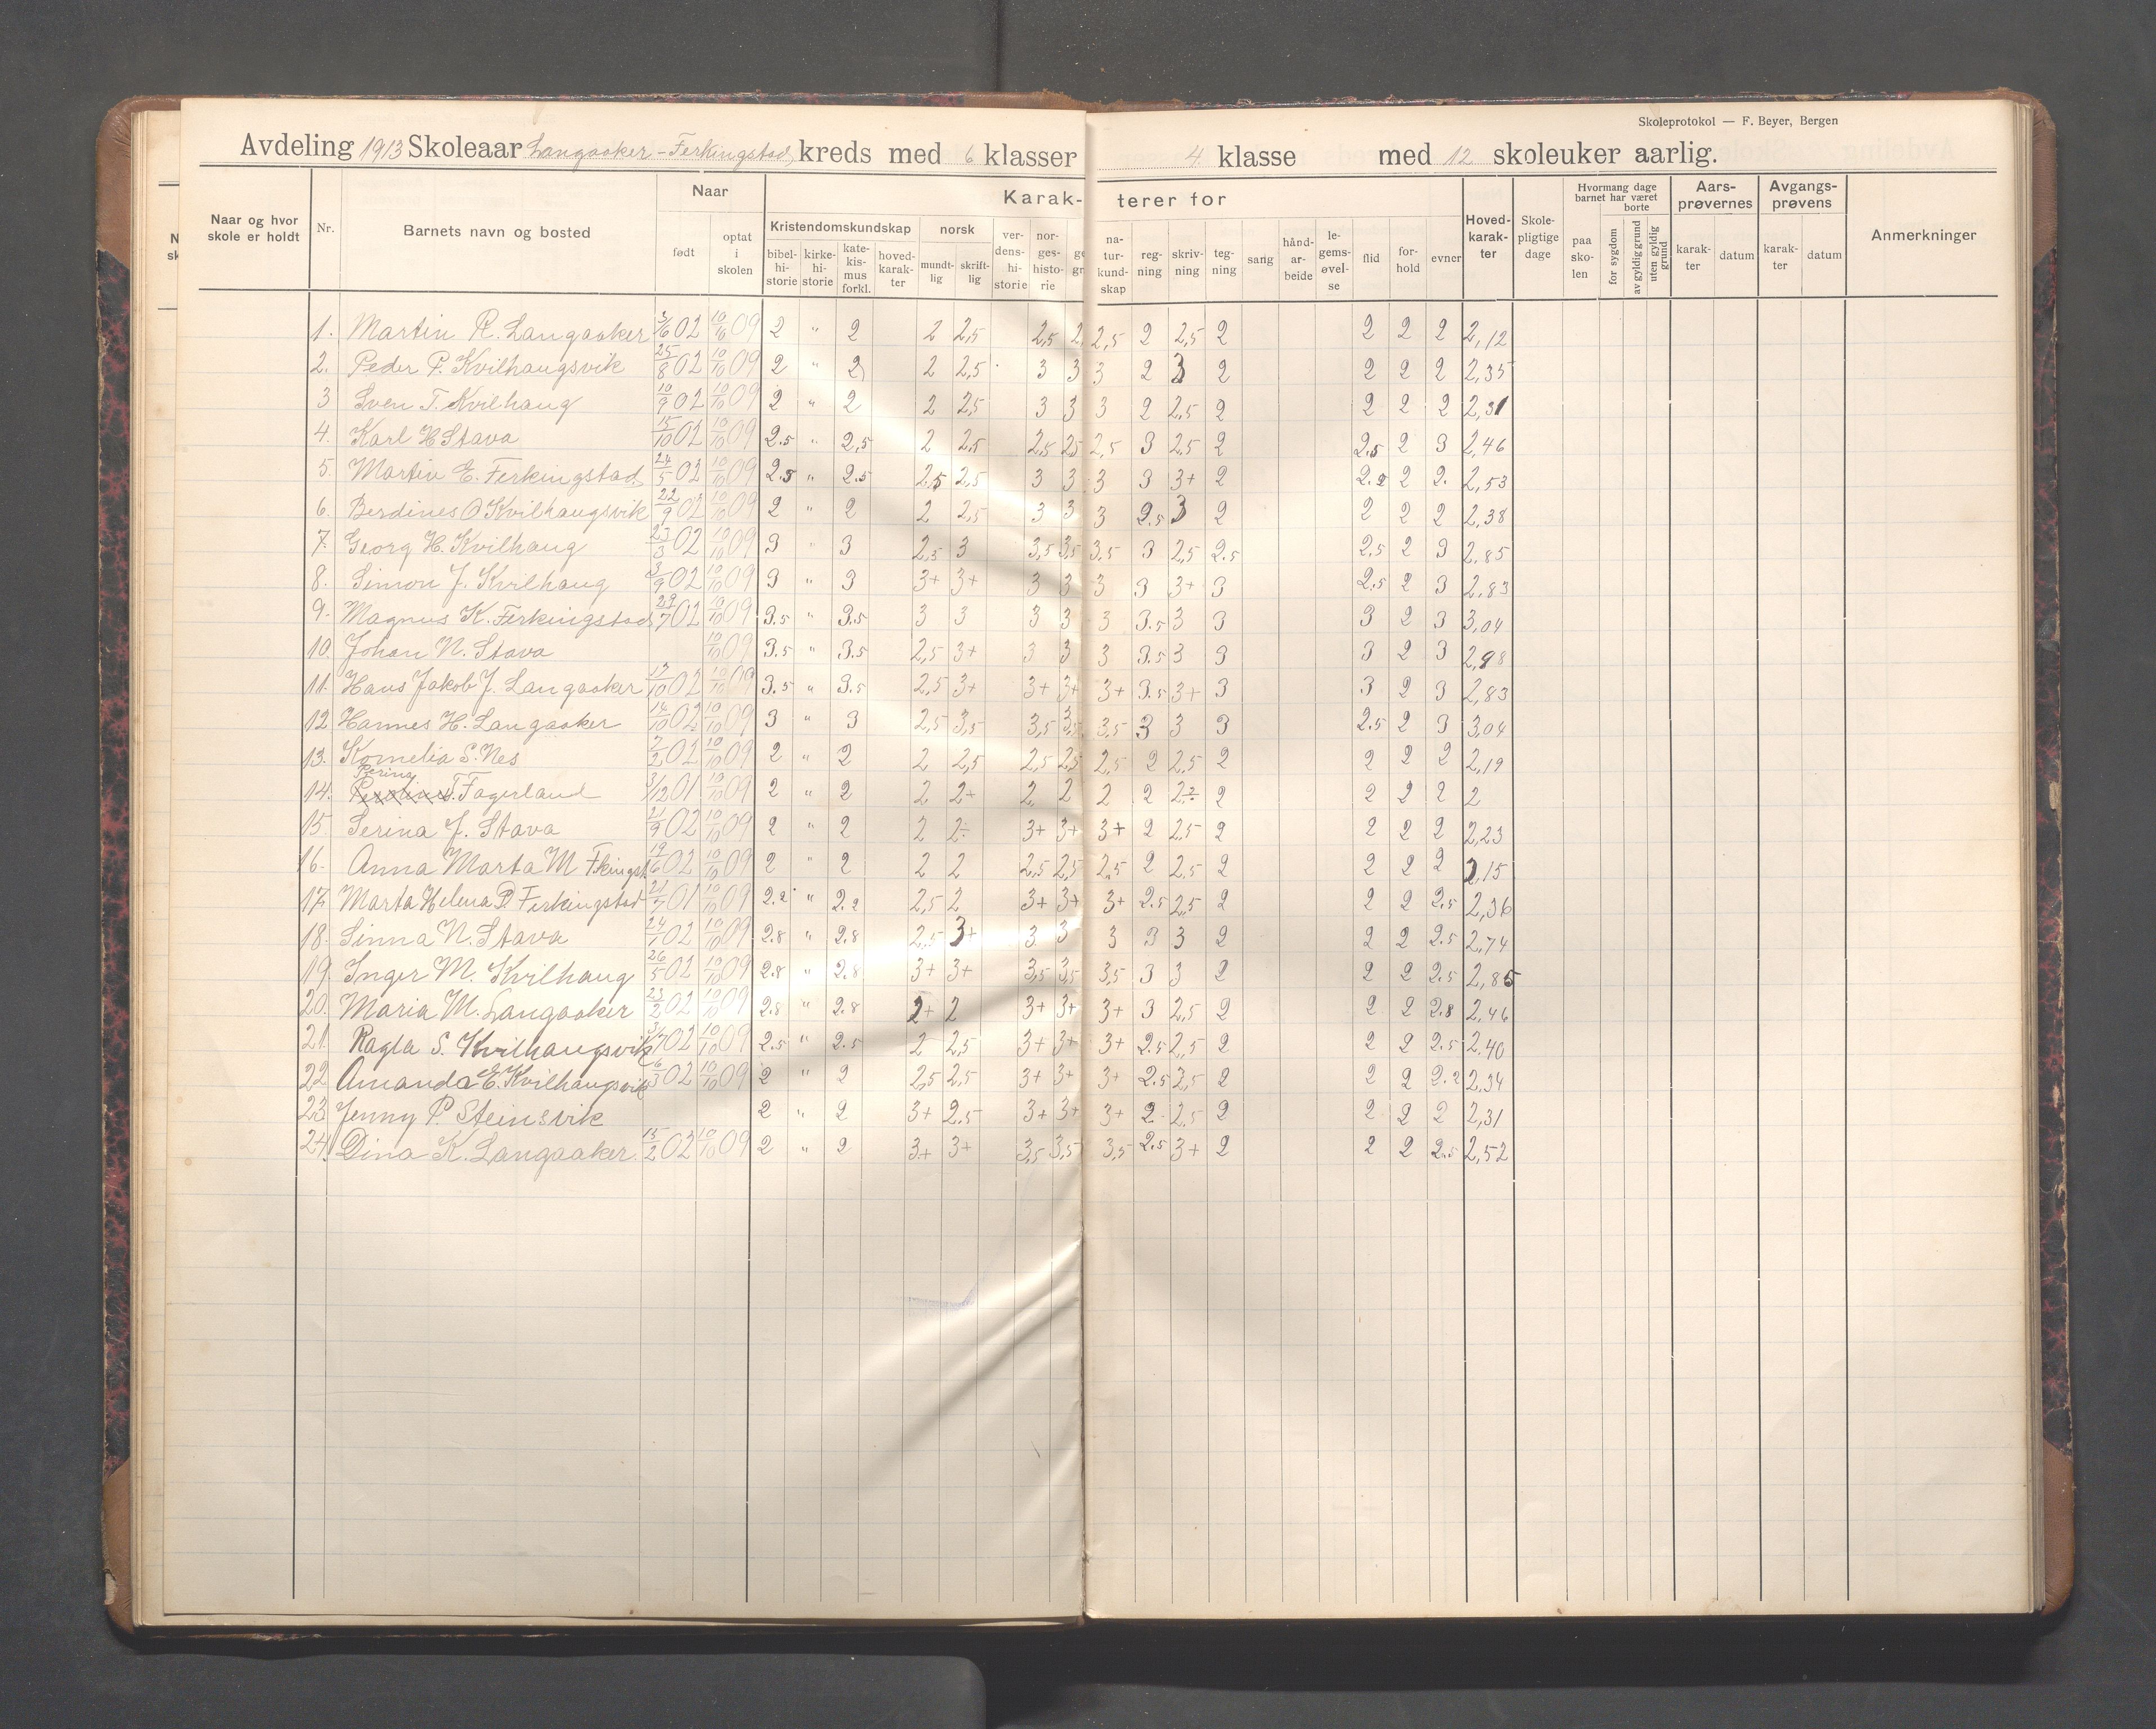 Skoleprotokol — F. Beyer, Bergen
Avdeling 1913 Skoleaar Langaaker - Ferkingstad, kreds med 6 klasser 4 klasse med 12 skoleuker aarlig.
Naar og hvor skole er holdt Nr. Barnets navn og bosted Naar født optat i skolen Karakterer for Kristendomskundskap bibelhistorie kirkehistorie katekismus forkl. hovedkarakter norsk mundtlig skriftlig verdenshistorie norgeshistorie naturkundskap regning skrivning tegning sang håndarbeide legemsøvelse flid forhold evner Hovedkarakter Skolepligtige dage Hvormang dage barnet har været paa skolen borte for sygdom av gyldig grund uten gyldig grund Aarsprøvernes karakter datum Avgangsprøvens karakter datum Anmerkninger
1. Martin R. Langaaker 02 10/10 09 2 " 2 2 2,5 2,5 2, 2,5 2 2,5 2 2 2 2 2,12
2. Peder P. Kvilhaugsvik 25/8 02 10/10 09 2 " 2 2 2,5 3 3 3 2 3 2 2 2 2 2,35
3 Sven T. Kvilhaug 10/9 02 10/10 09 2 " 2 2 2,5 3 3 3 2 2,5 2 2 2 2 2,31
4. Karl H Stava 15/10 02 10/10 09 2.5 " 2,5 2 2,5 2,5 25 2,5 3 2,5 2 2.5 2 3 2,46
5. Martin E. Ferkingstad 24/5 02 10/10 09 2.5 " 2.5 2,5 2,5 3 3 3 3 3+ 2 2.2 2 2. 2,53
6. Berdines O Kvilhaugsvik 22/9 02 10/10 09 2 " 2 2 2,5 3 3 3 2.5 3 2 2 2 2 2,38
7. Georg H. Kvilhaug 23/3 02 10/10 09 3 " 3 2,5 3 3,5 3,5 3.5 3 2,5 2.5 2.5 2 3 2,85
8. Simon J. Kvilhaug 3/9 02 10/10 09 3 " 3 3+ 3+ 3 3 3 3 3+ 3 2.5 2 3 2,83
9. Magnus K. Ferkingstad 29/7 02 10/10 09 3.5 " 3.5 3 3 3 3 3 3.5 3 3 3 2 3 3,04
10. Johan N. Stava 10/10 09 3.5 " 3.5 2,5 3+ 3 3 3 3.5 3 3 3 2 3 2,98
11. Hans Jakob J. Langaaker 02 10/10 09 3.5 " 3.5 2,5 3+ 3+ 3+ 3+ 3.5 3+ 3 3 2 3 2,83
12 Hannes H. Langaaker 14/10 02 10/10 09 3 " 3 2,5 3,5 3,5 3,5 3,5 3 3 3 2.5 2 3 3,04
13. Kornelia S. Nes 02 10/10 09 2 " 2 2 2,5 2,5 2,5 2,5 2 2,5 2 2 2 2 2,19
14. T. Fagerland 3/12 01 10/10 09 2 " 2 2 2+ 2 2 2 2 2 2 2 2 2 2
15. Serina J. Stava 21/9 02 10/10 09 2 " 2 2 2÷ 3+ 3+ 3+ 2 2,5 2 2 2 2 2,23
16. Anna Marta M Fkingst. 19/6 02 10/10 09 2 " 2 2 2 2,5 2,5 2,5 2 2,5 2 2 2 2 2,15
17. Marta Helena P. Ferkingstad 21/7 01 10/10 09 2.2 " 2.2 2,5 2 3+ 3+ 3+ 2.5 2,5 2 2 2 2.5 2,36
18. Sinna N. Stava 24/1 02 10/10 09 2.8 " 2.8 2,5 3+ 3 3 3 3 3 2 2 2 2.5 2,74
19. Inger M. Kvilhaug 26/5 02 10/10 09 2.8 " 2.8 3+ 3+ 3,5 3,5 3,5 3 3 2 2 2 2.5 2,85
20. Maria M. Langaaker 23/2 02 10/10 09 2.8 " 2.8 2+ 2 3+ 3+ 3+ 3 2,5 2 2 2 2.8 2,46
21. Ragla S. Kvilhaugsvik 02 10/10 09 2.5 " 2.5 2 2,5 3+ 3+ 3+ 2.5 2,5 2 2 2 2.5 2.40
22 Amanda E. Kvilhaugsvik 02 10/10 09 2 " 2 2,5 2,5 3+ 3+ 3+ 2.5 2,5 2 2 2 2.2 2,34
23 Jenny P. Steinsvik 2 " 2 3+ 2.5 3+ 3+ 3+ 2 2,5 2 2 2 2 2,31
24. Dina K. Langaaker. 15/2 02 10/10 09 2 " 2 3+ 3+ 3,5 3,5 3,5 2.5 3+ 2 2 2 2.5 2,52